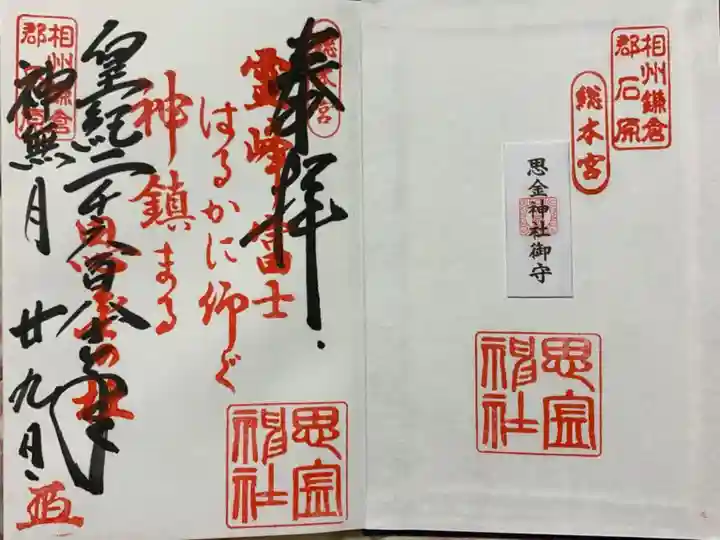 相州鎌倉
郡石原
総本宮
思金神社御守
思金
神社
総本宮
奉拝
霊峰富士
はるかに仰ぐ
神鎮まる
相州鎌倉
郡
皇紀二千六百
年
神無月 廿九日
思金
神社